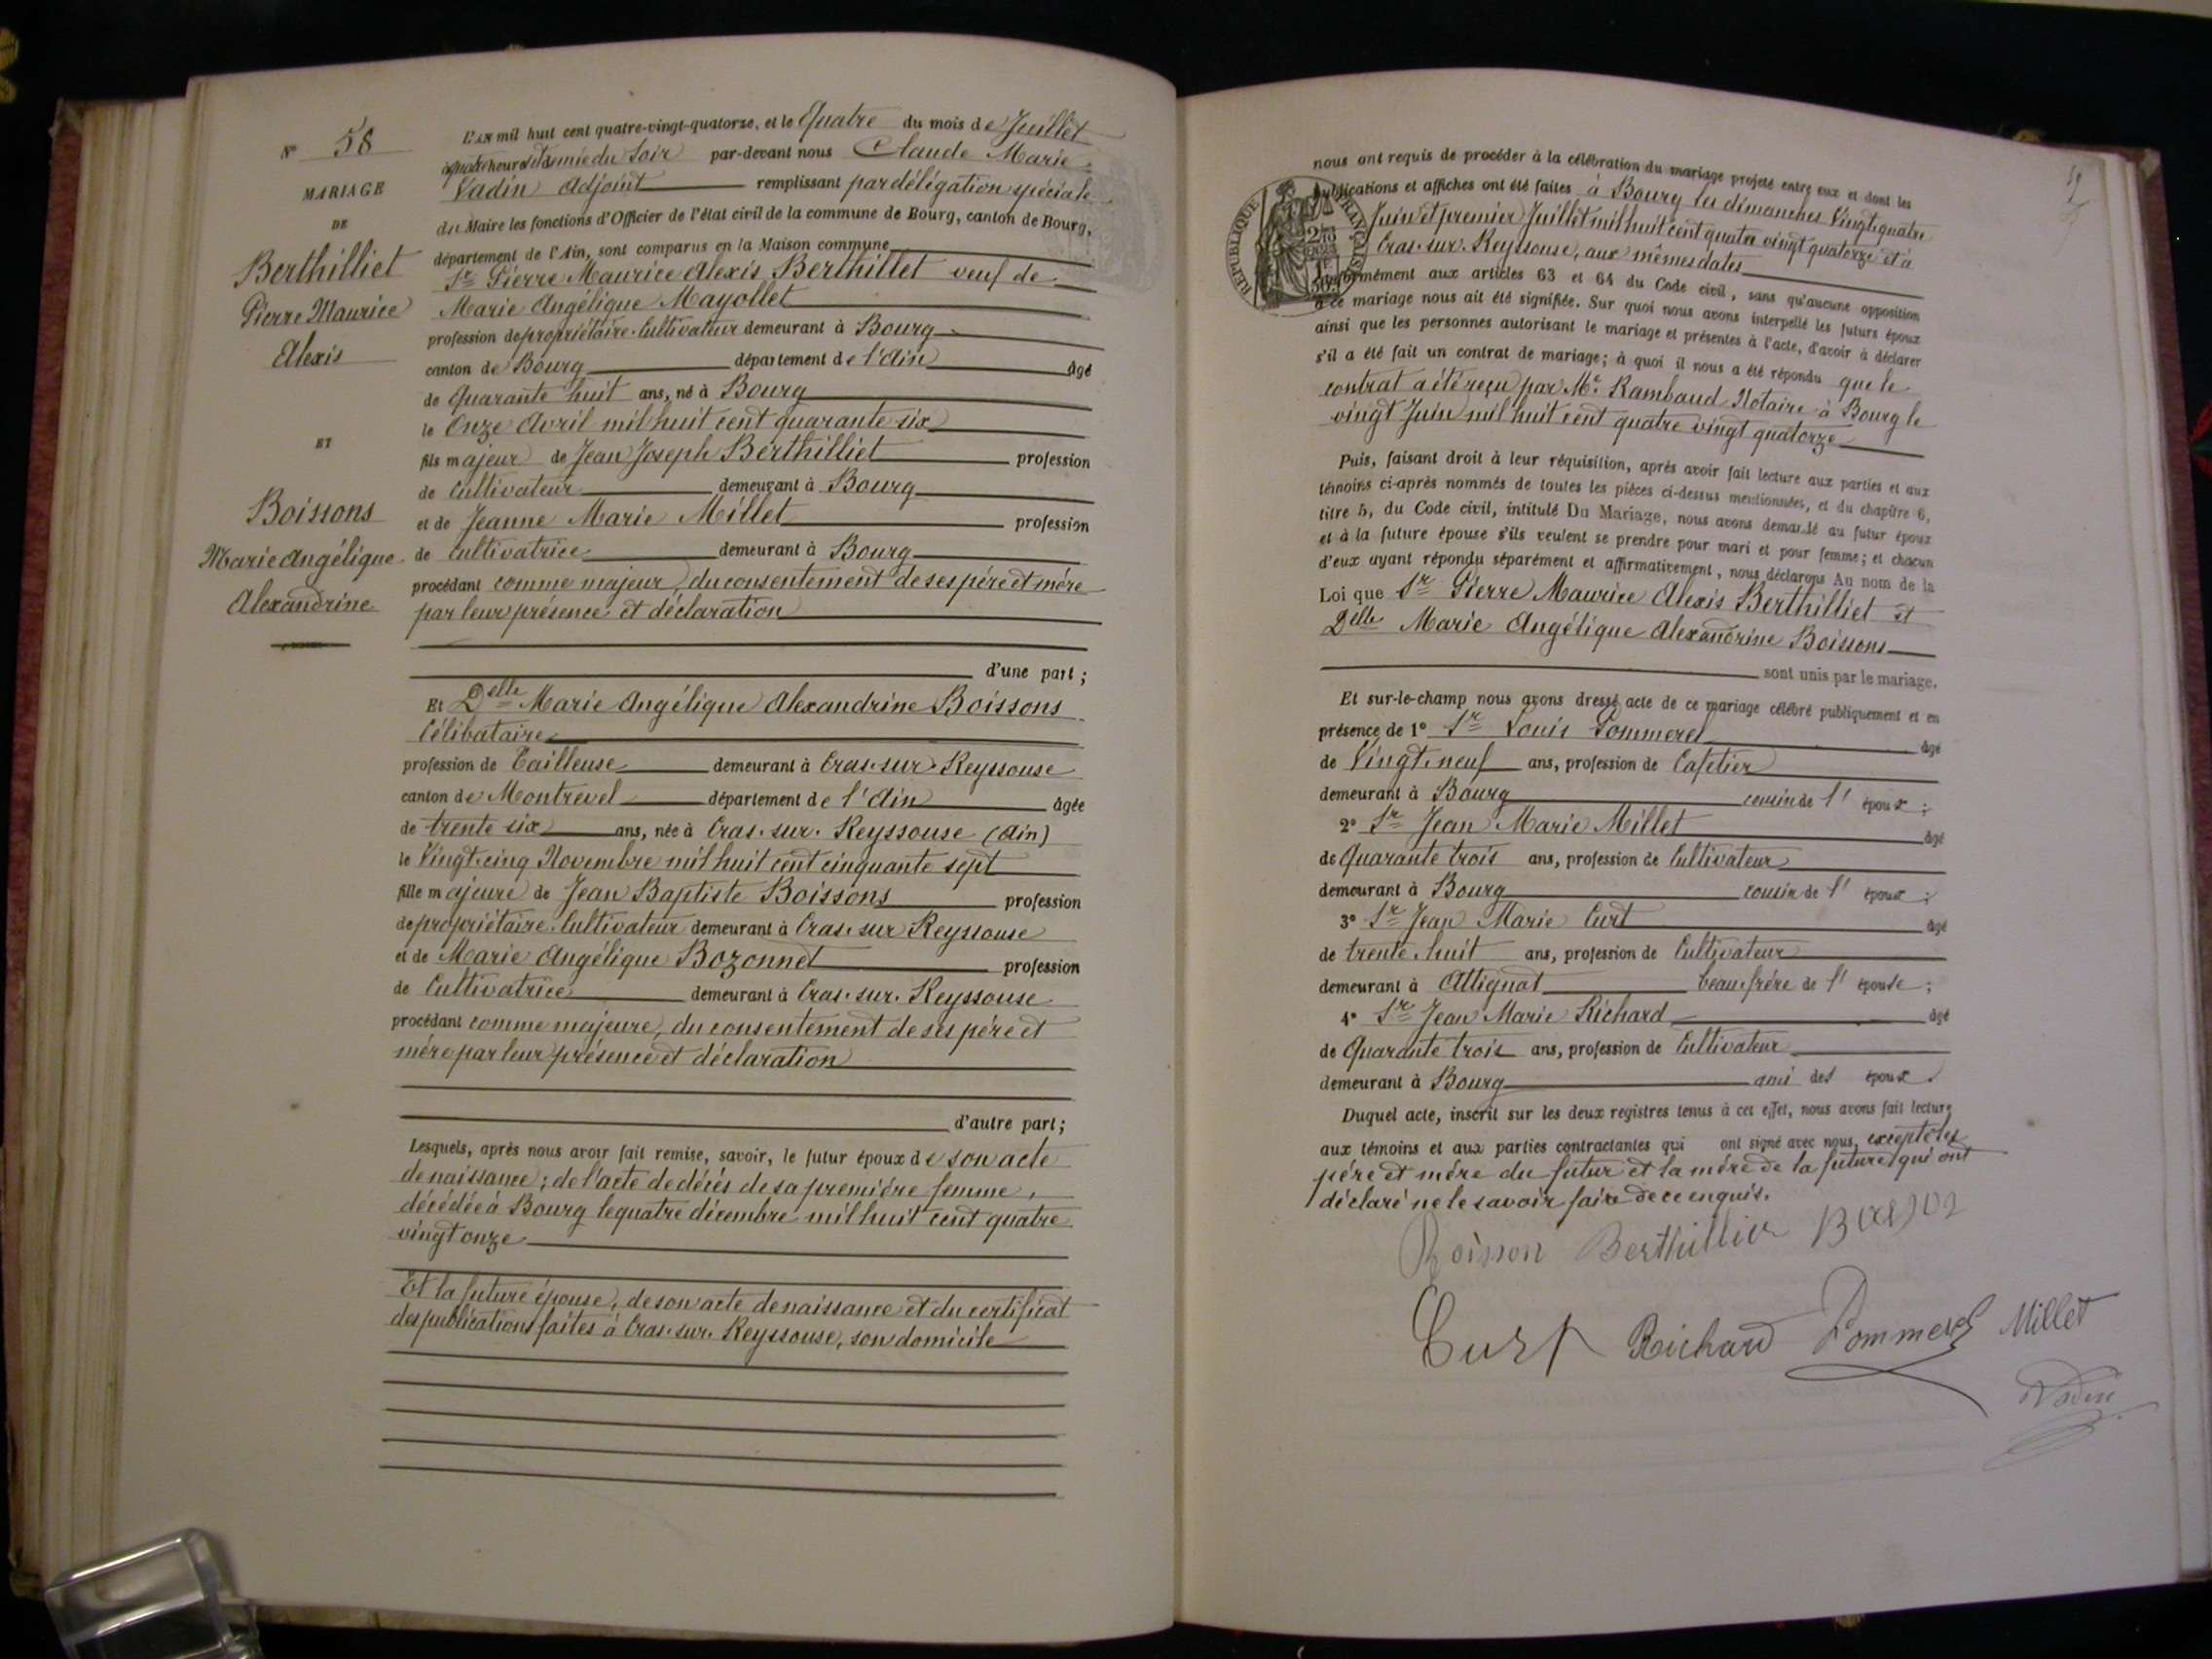 N° 58
MARIAGE
DE
Berthilliet
Pierre Maurice
Alexis
ET
Boissons
Marie Angélique
Alexandrine
L'AN mil huit cent quatre-vingt-quatorze, et le Quatre du mois de Juillet
à quatre heures et demie du soir par-devant nous Claude Marie
Vadin Adjoint remplissant par délégation spéciale
du Maire les fonctions d'Officier de l'état civil de la commune de Bourg, canton de Bourg,
département de l'Ain, sont comparus en la Maison commune
Sr Pierre Maurice Alexis Berthillet veuf de
Marie Angélique Mayollet
profession de propriétaire-Cultivateur demeurant à Bourg
canton de Bourg département de l'Ain âgé
de Quarante huit ans, né à Bourg
le Onze Avril mil huit cent quarante six
fils majeur de Jean Joseph Berthilliet profession
de Cultivateur demeurant à Bourg
et de Jeanne Marie Millet profession
de Cultivatrice demeurant à Bourg
procédant comme majeur, du consentement de ses père et mère
par leur présence et déclaration
d'une part ;
Et Delle Marie Angélique Alexandrine Boissons
Célibataire
profession de Tailleuse demeurant à Cras-sur-Reyssouse
canton de Montrevel département de l'Ain âgée
de trente six ans, née à Cras-sur-Reyssouse (Ain)
le Vingt-cinq Novembre mil huit cent cinquante sept
fille majeure de Jean Baptiste Boissons profession
de propriétaire-Cultivateur demeurant à Cras-sur Reyssouse
et de Marie Angélique Bozonnet profession
de Cultivatrice demeurant à Cras-sur-Reyssouse
procédant comme majeure, du consentement de ses père et
mère par leur présence et déclaration
d'autre part ;
Lesquels, après nous avoir fait remise, savoir, le futur époux de son acte
de naissance ; de l'acte de décès de sa première femme,
décédée à Bourg le quatre décembre mil huit cent quatre
vingt onze
Et la future épouse, de son acte de naissance et du certificat
des publications faites à Cras-sur-Reyssouse, son domicile
nous ont requis de procéder à la célébration du mariage projeté entre eux et dont les
publications et affiches ont été faites à Bourg les dimanches Vingt-quatre
Juin et premier Juillet mil huit cent quatre vingt quatorze et à
Cras-sur-Reyssouse, aux mêmes dates
conformément aux articles 63 et 64 du Code civil, sans qu'aucune opposition
à ce mariage nous ait été signifiée. Sur quoi nous avons interpellé les futurs époux
ainsi que les personnes autorisant le mariage et présentes à l'acte, d'avoir à déclarer
s'il a été fait un contrat de mariage; à quoi il nous a été répondu que le
contrat a été reçu par Me Rambaud Notaire à Bourg le
vingt Juin mil huit cent quatre vingt quatorze
Puis, faisant droit à leur réquisition, après avoir fait lecture aux parties et aux
témoins ci-après nommés de toutes les pièces ci-dessus mentionnées, et du chapitre 6,
titre 5, du Code civil, intitulé Du Mariage, nous avons demandé au futur époux
et à la future épouse s'ils veulent se prendre pour mari et pour femme; et chacun
d'eux ayant répondu séparément et affirmativement, nous déclarons Au nom de la
Loi que Sr Pierre Maurice Alexis Berthilliet et
Delle Marie Angélique Alexandrine Boissons
sont unis par le mariage.
Et sur-le-champ nous avons dressé acte de ce mariage célébré publiquement et en
présence de 1° Sr Louis Pommerel âgé
de Vingt-neuf ans, profession de Cafetier
demeurant à Bourg cousin de l'époux ;
2° Sr Jean Marie Millet âgé
de Quarante trois ans, profession de Cultivateur
demeurant à Bourg cousin de l'époux ;
3° Sr Jean Marie Curt âgé
de trente-huit ans, profession de Cultivateur
demeurant à Attignat beau-frère de l'épouse ;
4° Sr Jean Marie Richard âgé
de Quarante trois ans, profession de Cultivateur
demeurant à Bourg ami des époux.
Duquel acte, inscrit sur les deux registres tenus à cet effet, nous avons fait lecture
aux témoins et aux parties contractantes qui ont signé avec nous, excepté les
père et mère du futur et la mère de la future, qui ont
déclaré ne le savoir faire de ce enquis.
RÉPUBLIQUE FRANÇAISE
Boisson Berthillier
Curt Richard Pommerel Millet
Vadin